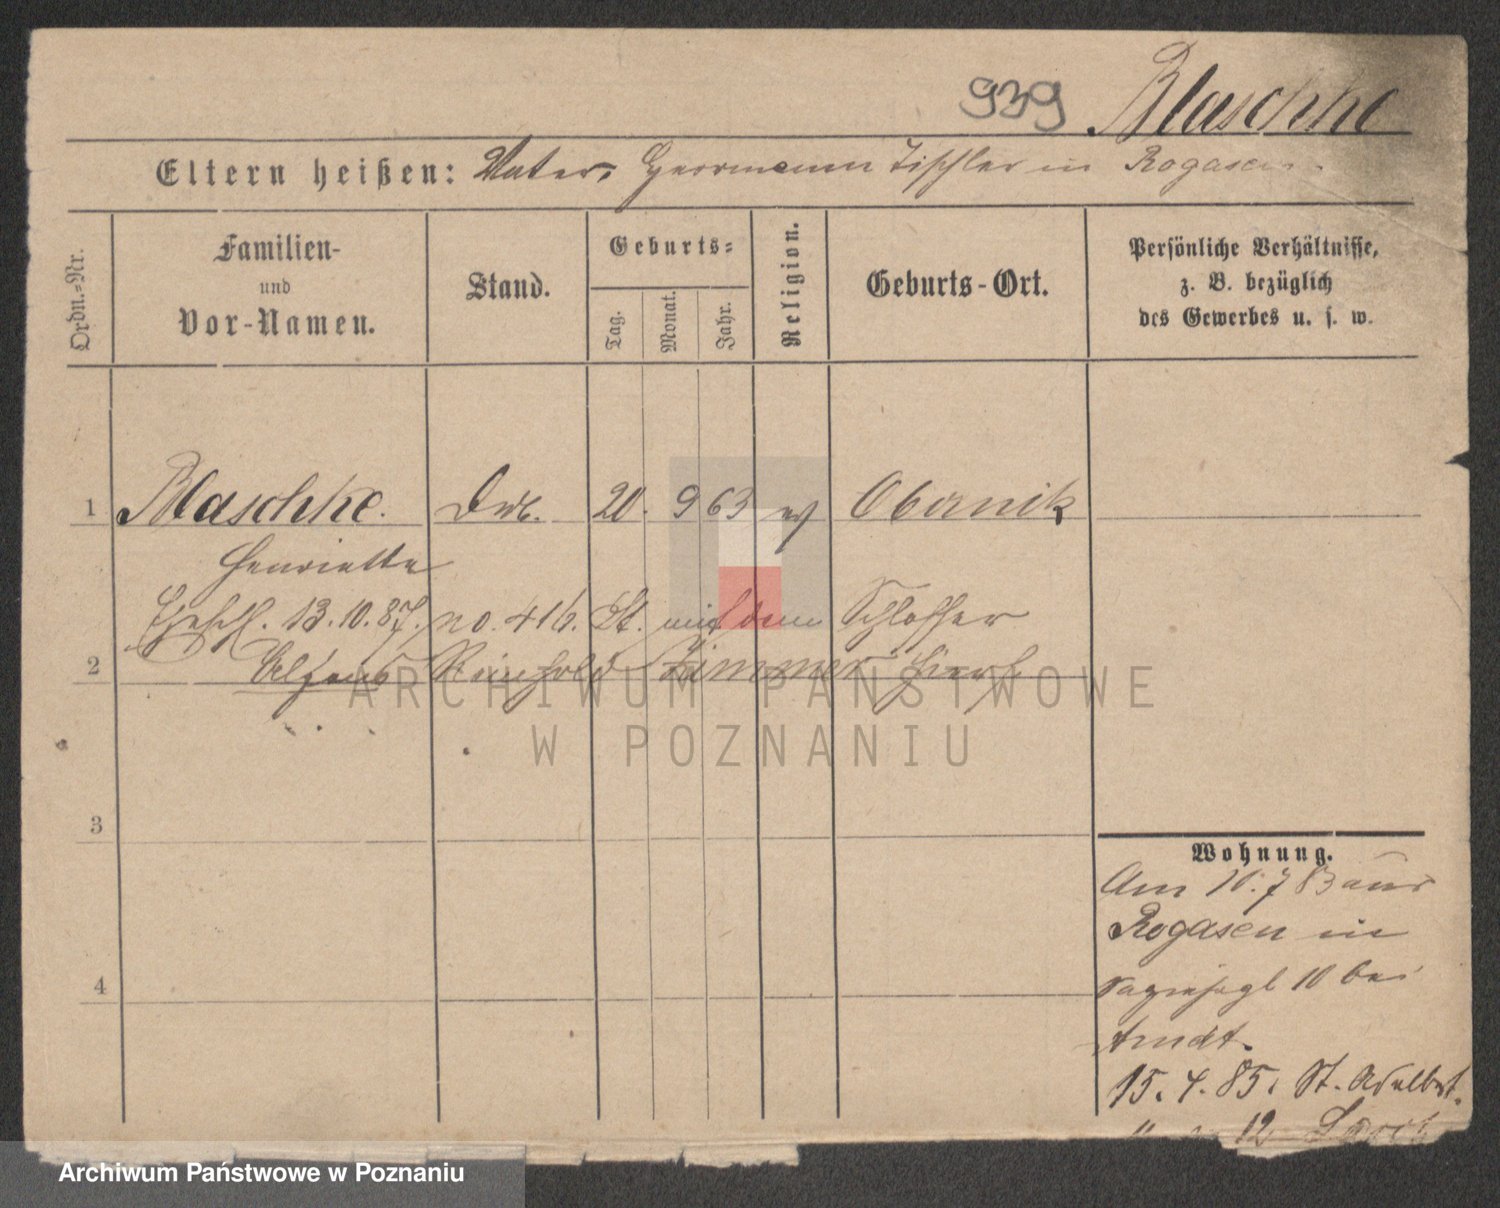 939 Blaschke
Eltern heißen: Vater, Herrmann Tischler in Rogasen
Ordn.-Nr.
Familien-
und
Vor-Namen.
Stand.
Geburts-
Tag.
Monat.
Jahr.
Religion.
Geburts-Ort.
Persönliche Verhältnisse,
z. B. bezüglich
des Gewerbes u. s. w.
1 Blaschke. 20. 9 63 ev Obornik
Henriette
Ehesch. 13.10.87. no. 416. St. mit dem Schlosser
2 Reinhold Zimmer hier
3
4
Wohnung.
Am 10.7 83 aus
Rogasen in
10 bei
Arndt.
15. 4. 85. St. Adalbert.
12
ARCHIWUM PAŃSTWOWE
W POZNANIU
Archiwum Państwowe w Poznaniu